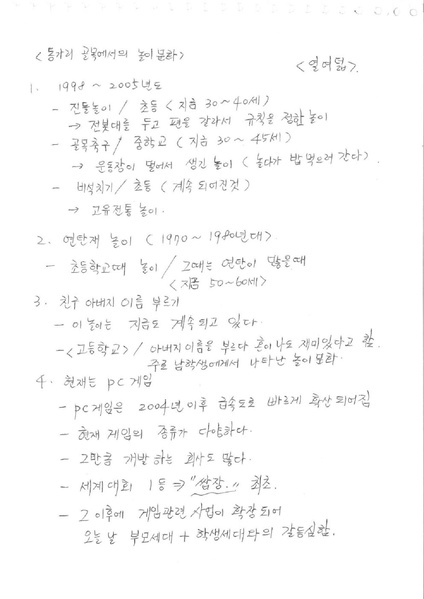 <통가리 골목에서의 놀이문화>
<열여덟>.
1. 1998 ~ 2005년도
- 진돌놀이 / 초등 (지금 30~40세)
→ 전봇대를 두고 편을 갈라서 규칙을 정한 놀이
- 골목축구 / 중학교 (지금 30~45세)
→ 운동장이 멀어서 생긴 놀이 (놀다가 밥 먹으러 간다).
- 비석치기 / 초등 (계속 되어진것)
→ 고유전통 놀이.
2. 연탄재 놀이 (1970~1980년대>
- 초등학교때 놀이 / 그때는 연탄이 많을때
<지금 50~60세>
3. 친구 아버지 이름 부르기
- 이 놀이는 지금도 계속 되고 있다.
- <고등학교> / 아버지 이름을 부르다 혼이나도 재미있다고 함.
주로 남학생에게서 나타난 놀이 문화.
4. 현재는 pc 게임
- pc게임은 2004년 이후 급속도로 빠르게 확산 되어짐
- 현재 게임의 종류가 다양하다.
- 그만큼 개발 하는 회사도 많다.
- 세계대회 1등 ⇒ "쌈장." 최초.
- 그 이후에 게임관련 사업이 확장 되어
오늘날 부모세대 + 학생세대와의 갈등심함.